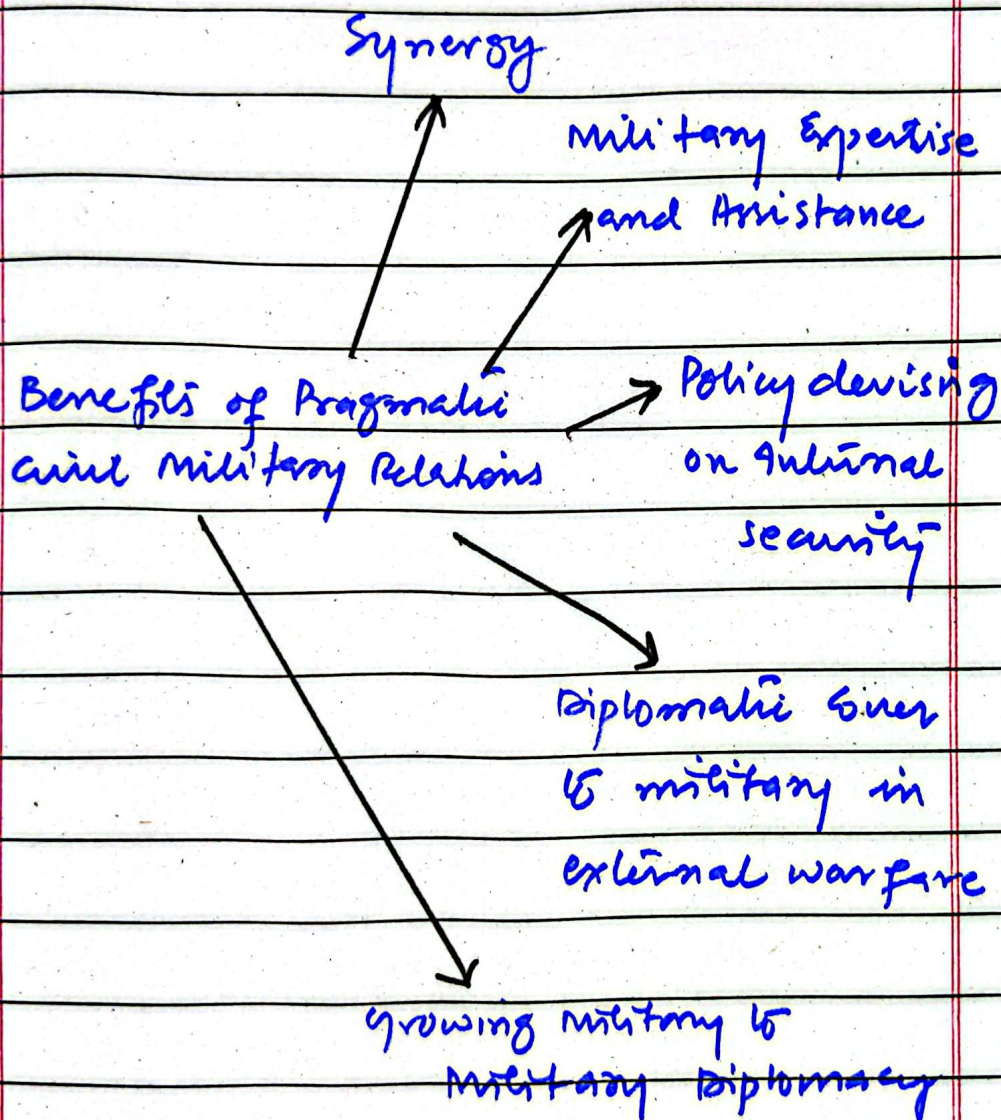 Synergy
Military Expertise
and Assistance
Benefits of Pragmatic
Civil Military Relations
Policy devising
on Internal
security
Diplomatic Cover
to military in
external warfare
Growing Military to
Military Diplomacy